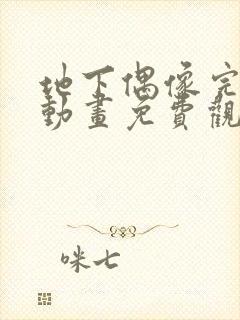 地下偶像完
動畫免費觀
咪七